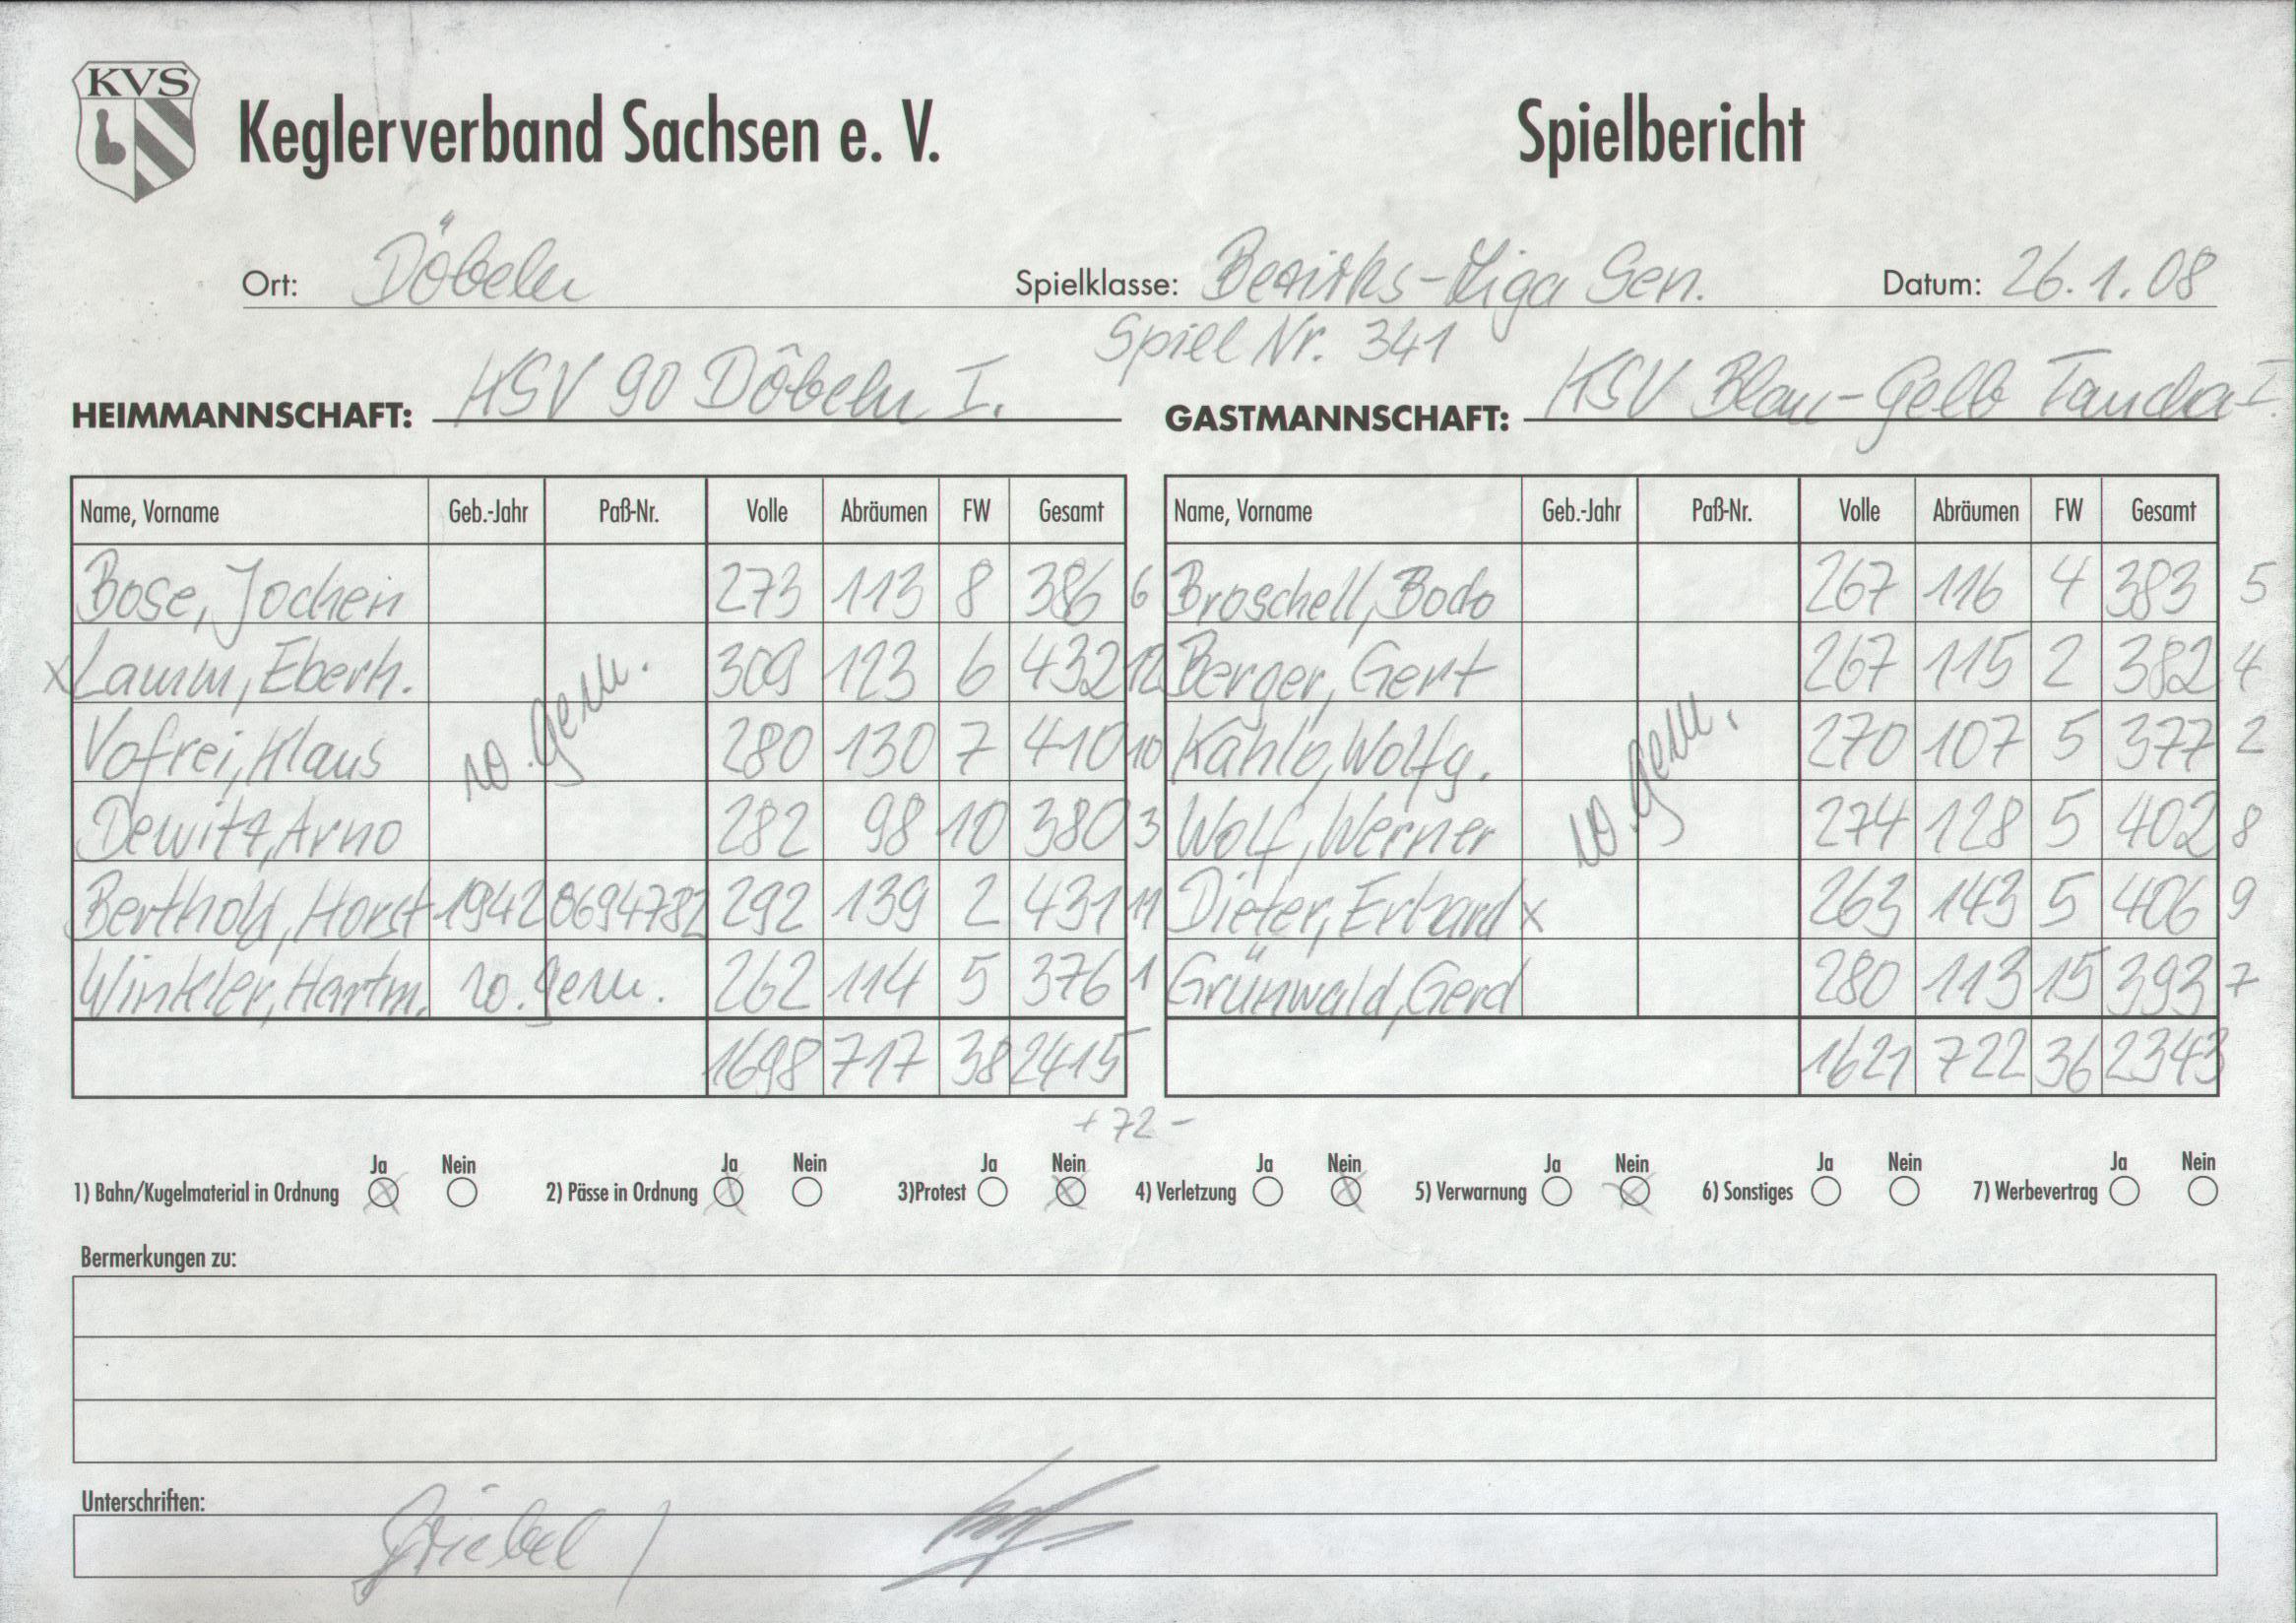 KVS
Keglerverband Sachsen e. V. Spielbericht
Ort: Döbeln Spielklasse: Bezirks-Liga Sen. Datum: 26.1.08
Spiel Nr. 341
HEIMMANNSCHAFT: KSV 90 Döbeln I. GASTMANNSCHAFT: KSV Blau-Gelb Taucha I.
Name, Vorname Geb.-Jahr Paß-Nr. Volle Abräumen FW Gesamt Name, Vorname Geb.-Jahr Paß-Nr. Volle Abräumen FW Gesamt
Bose, Jochen 273 113 8 386 6 Broschell, Bodo 267 116 4 383 5
x Lamm, Eberh. 309 123 6 432 12 Berger, Gert 267 115 2 382 4
Vofrei, Klaus 280 130 7 410 10 Kahlo, Wolfg. 270 107 5 377 2
Dewitz, Arno 282 98 10 380 3 Wolf, Werner 274 128 5 402 8
Berthold, Horst 1942 0694782 292 139 2 431 11 Dieter, Erhard x 263 143 5 406 9
Winkler, Hartm. 262 114 5 376 1 Grünwald, Gerd 280 113 15 393 7
1698 717 38 2415 1621 722 36 2343
+ 72 -
Ja Nein Ja Nein Ja Nein Ja Nein Ja Nein Ja Nein Ja Nein
1) Bahn/Kugelmaterial in Ordnung 2) Pässe in Ordnung 3)Protest 4) Verletzung 5) Verwarnung 6) Sonstiges 7) Werbevertrag
Bermerkungen zu:
Unterschriften:
Griebel /